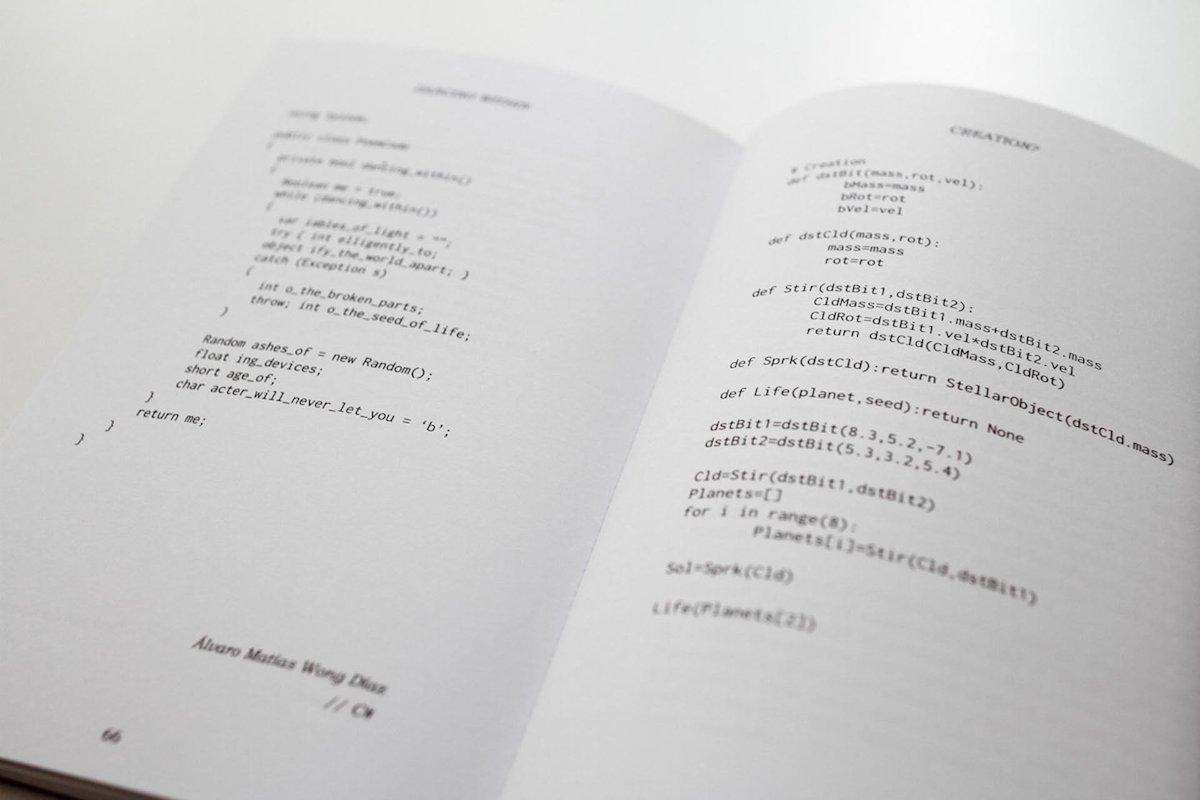 DANCING WITHIN
using System;
public class PoemCode
{
private bool dancing_within()
{
Boolean me = true;
while (dancing_within())
{
var iables_of_light = "";
try { int elligently_to;
object ify_the_world_apart; }
catch (Exception s)
{
int o_the_broken_parts;
throw; int o_the_seed_of_life;
}
Random ashes_of = new Random();
float ing_devices;
short age_of;
char acter_will_never_let_you = ‘b’;
}
return me;
}
}
Álvaro Matías Wong Díaz
// C#
66
CREATION?
# Creation
def dstBit(mass,rot,vel):
bMass=mass
bRot=rot
bVel=vel
def dstCld(mass,rot):
mass=mass
rot=rot
def Stir(dstBit1,dstBit2):
CldMass=dstBit1.mass+dstBit2.mass
CldRot=dstBit1.vel*dstBit2.vel
return dstCld(CldMass,CldRot)
def Sprk(dstCld):return StellarObject(dstCld.mass)
def Life(planet,seed):return None
dstBit1=dstBit(8.3,5.2,-7.1)
dstBit2=dstBit(5.3,3.2,5.4)
Cld=Stir(dstBit1,dstBit2)
Planets=[]
for i in range(8):
Planets[i]=Stir(Cld,dstBit1)
Sol=Sprk(Cld)
Life(Planets[2])